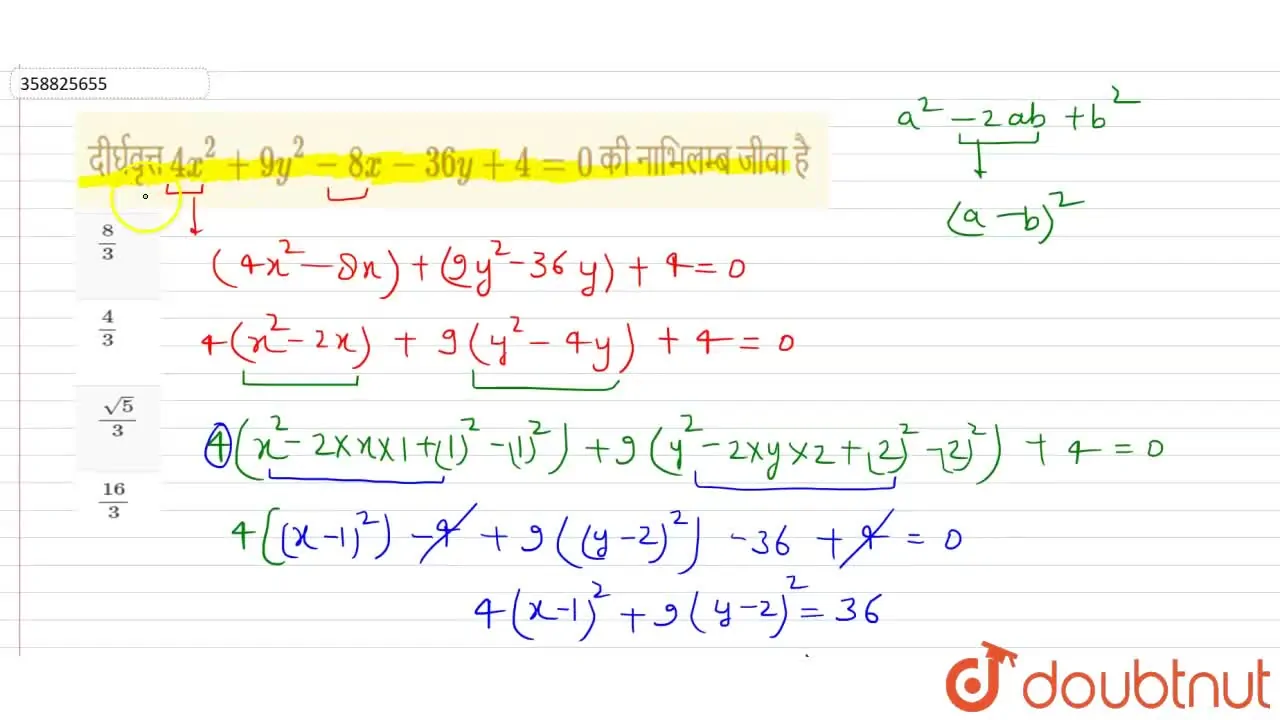 358825655
a² - 2ab + b²
(a - b)²
दीर्घवृत्त 4x² + 9y² - 8x - 36y + 4 = 0 की नाभिलम्ब जीवा है
8/3
4/3
√5/3
16/3
(4x² - 8x) + (9y² - 36y) + 4 = 0
4(x² - 2x) + 9(y² - 4y) + 4 = 0
4(x² - 2×x×1 + (1)² - (1)²) + 9(y² - 2×y×2 + (2)² - (2)²) + 4 = 0
4((x-1)²) - 4 + 9((y-2)²) - 36 + 4 = 0
4(x-1)² + 9(y-2)² = 36
doubtnut